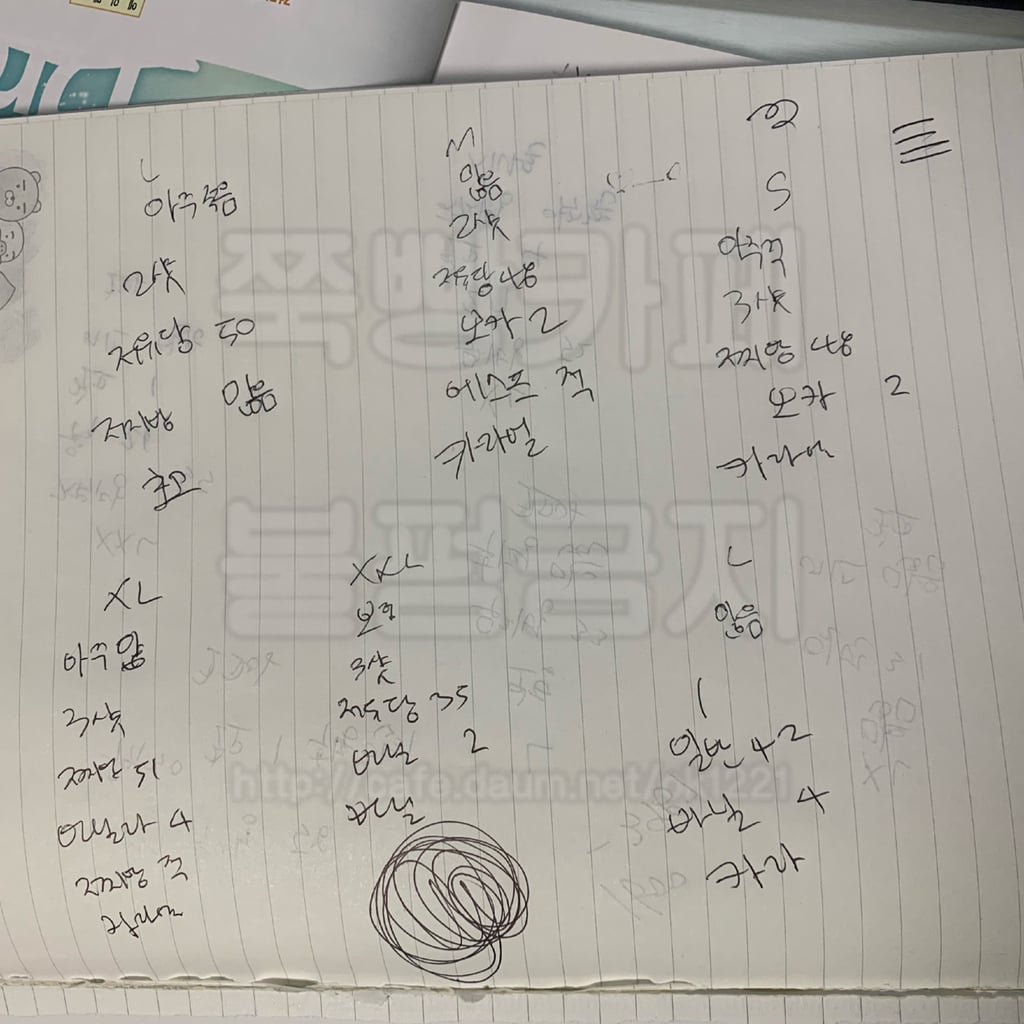 L
아주적음
2샷
저유당 50
저지방 많음
초코
M
많음
2샷
저유당 48
오카 2
에스프 적
카라멜
S
아주적
3샷
저지방 48
오카 2
카라멜
XL
아주많
3샷
저지방 51
바닐라 4
저지방 적
XXL
보통
3샷
저유당 35
바닐 2
바닐
L
많음
1
일반 42
바닐 4
카라
쭉빵카페
불펌금지
http://cafe.daum.net/ok1221